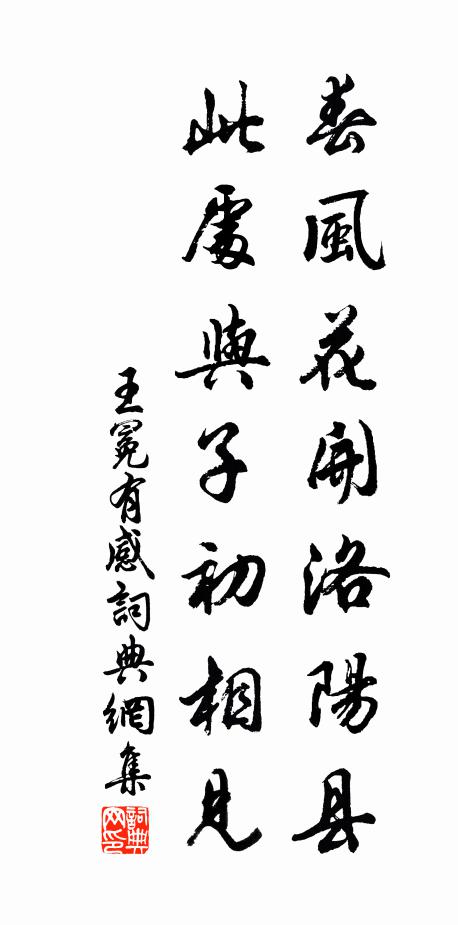 春風花開洛陽县
此處與子初相見
王冕有感詞典網集
詞典網印